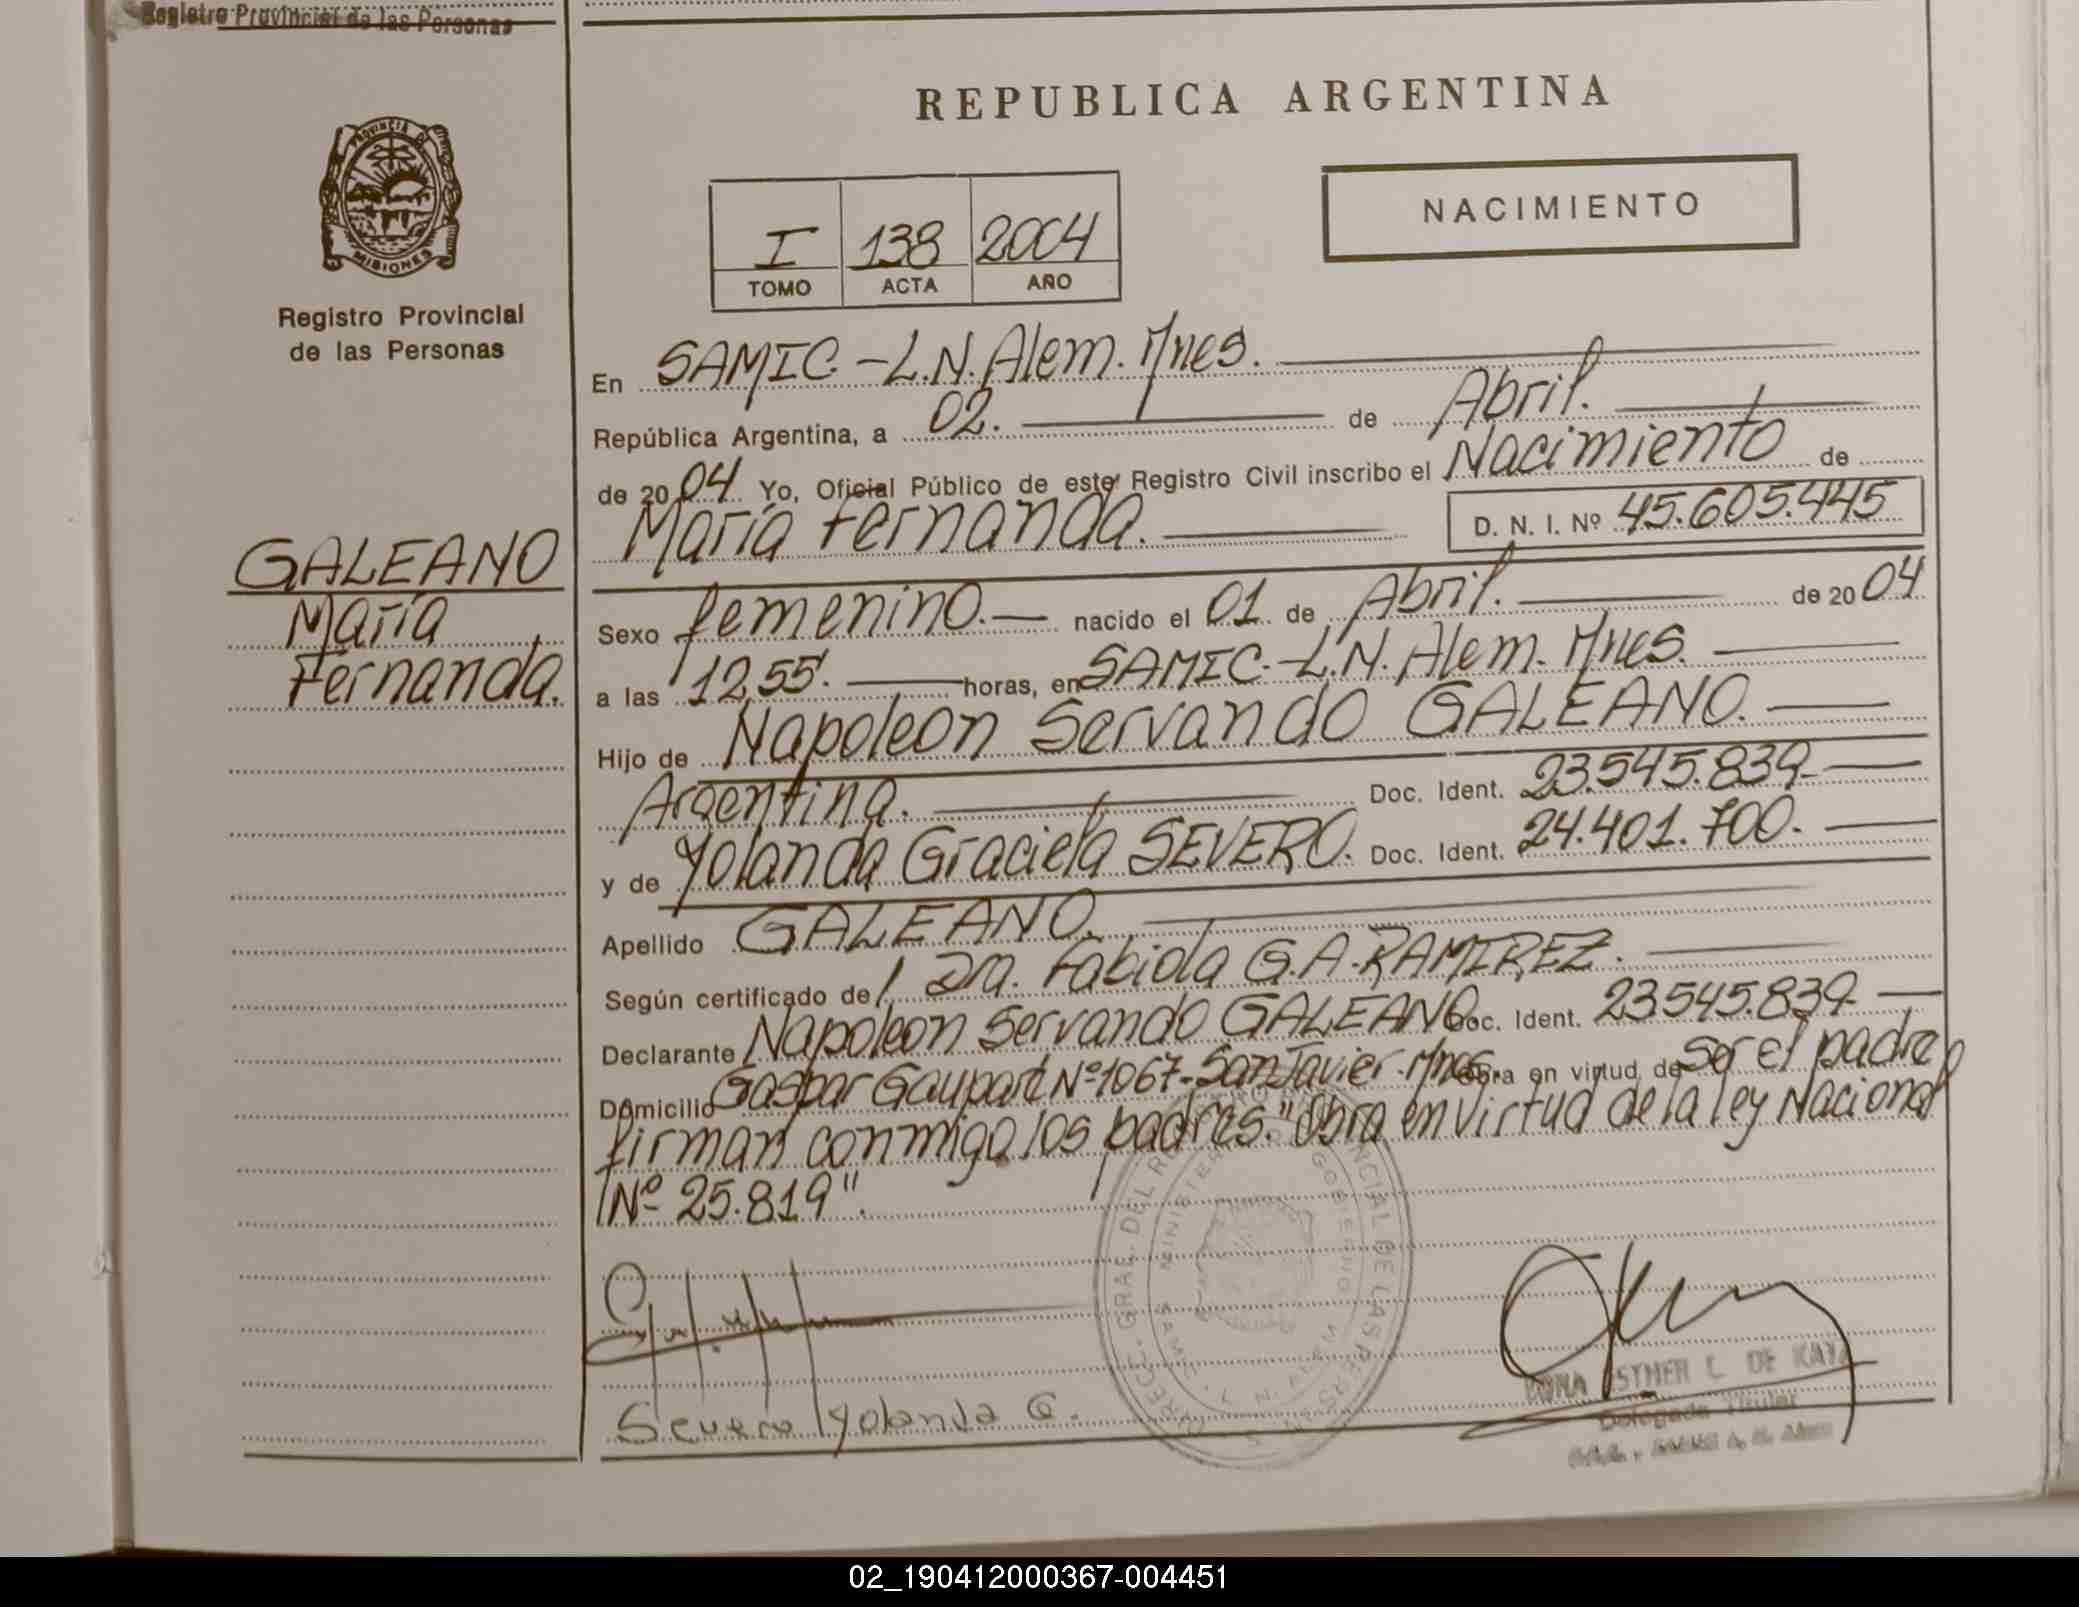 Registro Provincial de las Personas
REPUBLICA ARGENTINA
PROVINCIA DE
MISIONES
Registro Provincial
de las Personas
NACIMIENTO
I 138 2004
TOMO ACTA AÑO
En SAMIC.-L.N.Alem.Mnes.
República Argentina, a 02. de Abril.
de 2004 Yo, Oficial Público de este Registro Civil inscribo el Nacimiento de
María Fernanda. D. N. I. Nº 45.605.445
GALEANO
María
Fernanda.
Sexo femenino.- nacido el 01 de Abril. de 2004
a las 12,55'. horas, en SAMIC.-L.N. Alem. Mnes.
Hijo de Napoleon Servando GALEANO.
Argentina. Doc. Ident. 23.545.839-
y de Yolanda Graciela SEVERO. Doc. Ident. 24.401.700.
Apellido GALEANO.
Según certificado de/ Dra. Fabiola G.A.RAMIREZ.
Declarante Napoleon Servando GALEANO Doc. Ident. 23.545.839-
Domicilio Gaspar Gaupard Nº1067-San Javier-Mnes. Obra en virtud de Ser el padre
firman conmigo los padres. "Obra en virtud de la ley Nacional
Nº 25.819".
Severo Yolanda G.
DIREC. GRAL. DEL REG. PROVINCIAL DE LAS PERSONAS
MINISTERIO GOBIERNO
SAMIC L. N. ALEM
ESTHER L. DE KAY
Delegada Titular
02_190412000367-004451